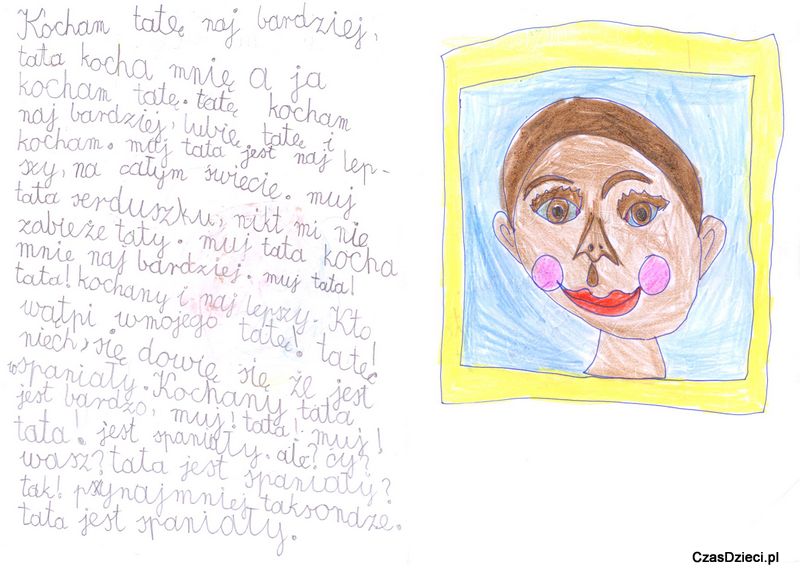 Kocham tatę naj bardziej,
tata kocha mnię a ja
kocham tatę. tatę kocham
naj bardziej, lubię tatę i
kocham. mój tata jest naj lep-
szy, na całym świecie. muj
tata serduszku, nikt mi nie
zabieże taty. muj tata kocha
mnie naj bardziej. muj tata!
tata! kochany i naj lepszy. Kto
wątpi wmojego tatę! tatę!
niech, się dowię się że jest
wspaniały. Kochany tata
jest bardzo, muj! tata! muj!
tata! jest spaniały. ale? cy?
wasz? tata jest spaniały?
tak! psynajmniej taksondze.
tata jest spaniały.
CzasDzieci.pl